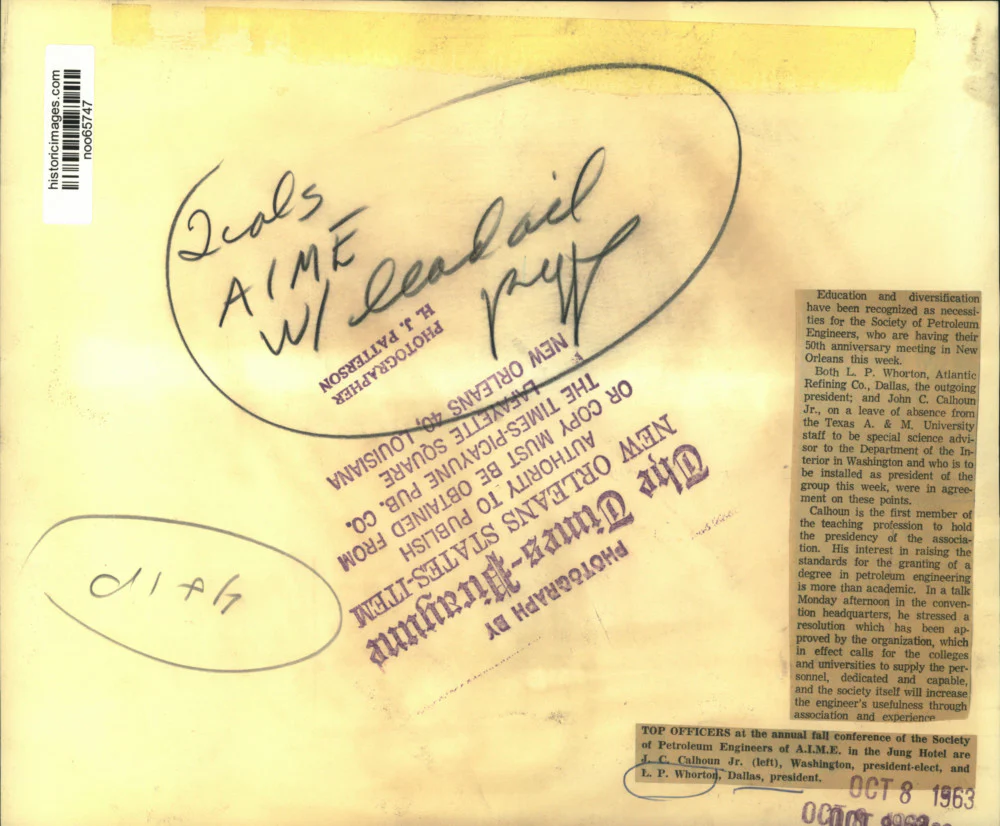 historicimages.com
noo65747
2cols
AIME
W/
PHOTOGRAPH BY
The Times-Picayune
NEW ORLEANS STATES-ITEM
AUTHORITY TO PUBLISH
OR COPY MUST BE OBTAINED FROM
THE TIMES-PICAYUNE PUB. CO.
LAFAYETTE SQUARE
NEW ORLEANS 40, LOUISIANA
PHOTOGRAPHER
H. J. PATTERSON
Education and diversification
have been recognized as necessi-
ties for the Society of Petroleum
Engineers, who are having their
50th anniversary meeting in New
Orleans this week.
Both L. P. Whorton, Atlantic
Refining Co., Dallas, the outgoing
president; and John C. Calhoun
Jr., on a leave of absence from
the Texas A. & M. University
staff to be special science advi-
sor to the Department of the In-
terior in Washington and who is to
be installed as president of the
group this week, were in agree-
ment on these points.
Calhoun is the first member of
the teaching profession to hold
the presidency of the associa-
tion. His interest in raising the
standards for the granting of a
degree in petroleum engineering
is more than academic. In a talk
Monday afternoon in the conven-
tion headquarters, he stressed a
resolution which has been ap-
proved by the organization, which
in effect calls for the colleges
and universities to supply the per-
sonnel, dedicated and capable,
and the society itself will increase
the engineer's usefulness through
association and experience
TOP OFFICERS at the annual fall conference of the Society
of Petroleum Engineers of A.I.M.E. in the Jung Hotel are
J. C. Calhoun Jr. (left), Washington, president-elect, and
L. P. Whorton, Dallas, president.
OCT 8 1963